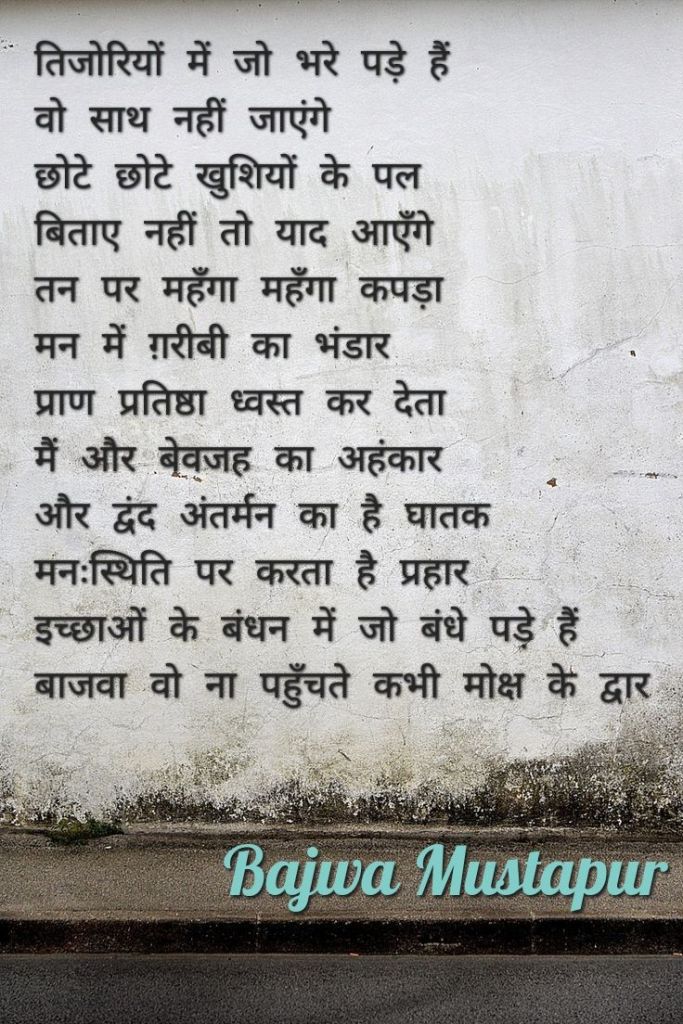 तिजोरियों में जो भरे पड़े हैं
वो साथ नहीं जाएंगे
छोटे छोटे खुशियों के पल
बिताए नहीं तो याद आएँगे
तन पर महँगा महँगा कपड़ा
मन में ग़रीबी का भंडार
प्राण प्रतिष्ठा ध्वस्त कर देता
मैं और बेवजह का अहंकार
और द्वंद अंतर्मन का है घातक
मनःस्थिति पर करता है प्रहार
इच्छाओं के बंधन में जो बंधे पड़े हैं
बाजवा वो ना पहुँचते कभी मोक्ष के द्वार
Bajwa Mustapur